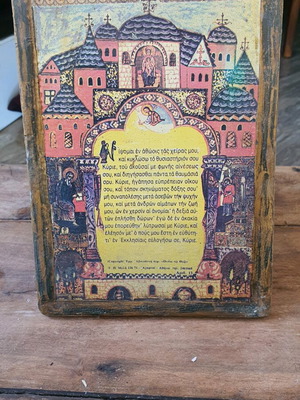 Νίψομαι ἐν ἀθώοις τὰς χεῖρας μου,
καὶ κυκλώσω τὸ θυσιαστήριόν σου
Κύριε, τοῦ ἀκοῦσαί με φωνῆς αἰνέσεως
σου, καὶ διηγήσασθαι πάντα τὰ θαυμάσιά
σου. Κύριε, ἠγάπησα εὐπρέπειαν οἴκου
σου, καὶ τόπον σκηνώματος δόξης σου·
μὴ συναπολέσῃς μετὰ ἀσεβῶν τὴν ψυχήν
μου, καὶ μετὰ ἀνδρῶν αἱμάτων τὴν ζωήν
μου, ὧν ἐν χερσὶν αἱ ἀνομίαι· ἡ δεξιὰ αὐ-
τῶν ἐπλήσθη δώρων· ἐγὼ δὲ ἐν ἀκακίᾳ
μου ἐπορεύθην· λύτρωσαί με Κύριε, καὶ
ἐλέησόν με· ὁ πούς μου ἔστη ἐν εὐθύτη-
τι· ἐν Ἐκκλησίαις εὐλογήσω σε, Κύριε.